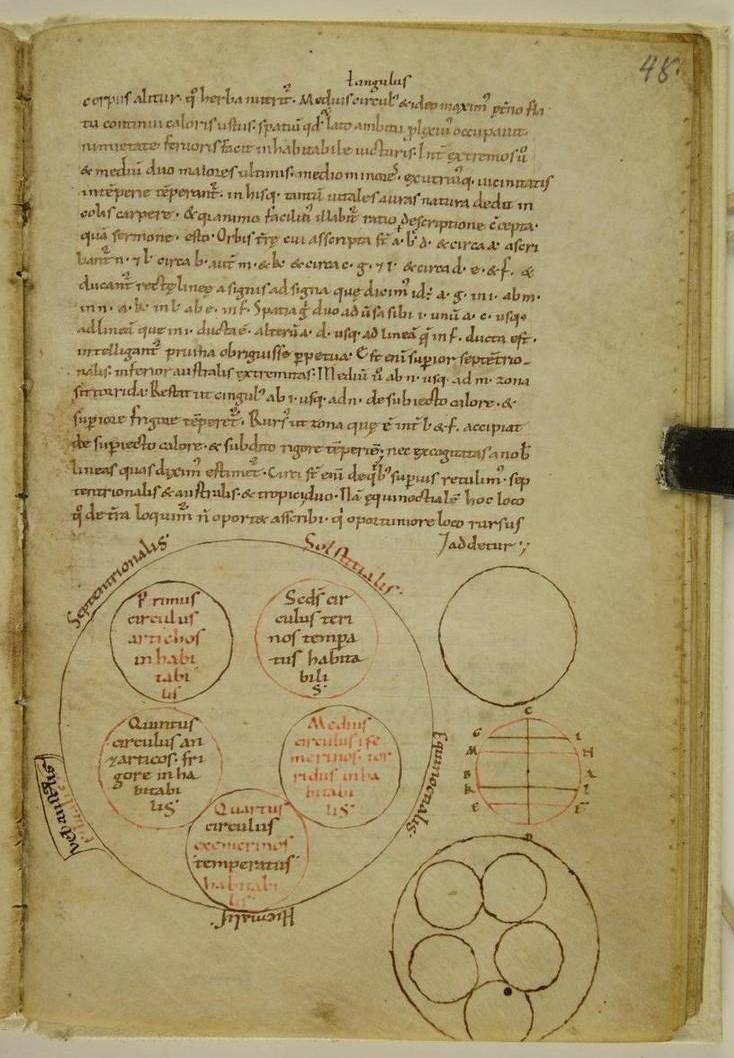 48.
tangulus
corpus alitur. q̄ herba nutrit᷑. Medius circul᷒ & ideo maxim᷒
tu continui caloris ustus. spatiū qd̄ lato ambitu plixiu᷒ occupavit.
nimietate fervoris facit inhabitabile victuris. Int̄ extremos ū
& mediū duo maiores ultimis. medio minores. ex utriusq. vicinitatis
intēperie tēperant᷑. in hisq. tantū vitales auras natura dedit in
colis carpere. & qa animo facilius illabit᷑ ratio descriptione cōcepta.
quā sermone. esto. Orbis tr̄e cui asscripta st̄ a. b. d. & circa a. ascri
bant᷑ n. & l. circa b. aut̄ m. & k. & circa c. g. & i. & circa d. e. & f. &
ducant᷑ recte lineę a signis ad signa que dicim᷒ id. a. g. in i. ab m.
in n. a. k. in l. ab e. in f. Spatia g̊ duo adūsa sibi i. unū a. c. usq.
ad lineā que in i. ducta ē. alterū a. d. usq. ad lineā q̄ in f. ducta est.
intelligant᷑ pruina obriguisse ppetua. Est enī supior septētrio-
nalis. inferior australis extremitas. Mediū ū ab n. usq. ad m. zona
sit torrida. Restat ut cingul᷒ ab i. usq. ad n. de subiecto calore. &
supiore frigore tēperet᷑. Rurs᷒ ut zona quę ē int̄ l. & f. accipiat
de supiecto calore. & subdito rigore tēperiē. nec excogitatas a nob̄
lineas quas dixim᷒ estimet᷑. Circi st̄ enī de qb᷒ supius retulim᷒. sep
tentrionalis & australis. & tropici duo. Nā equinoctialē hoc loco
q̊ de tr̄a loquim᷑ n̄ oportet asscribi. qi oportuniore loco rursus
addetur.
Septentrionalis
Solstitialis.
Primus
circulus
artichos
inhabi
tabi
lis
Scd̄s cir
culus teri
nos tempa
tus habita
bili
s
Quintus
circulus an
tarticos. fri
gore inha
bitabi
lis
Medius
circulus ise
merinos. tor
ridus inha
bitabi
lis
Quartus
circulus
exemerinos
temperatus
habitabi
lis
Equinoctialis.
Hiemalis.
vel australis
C
G I
M N
B A
K L
E F
D